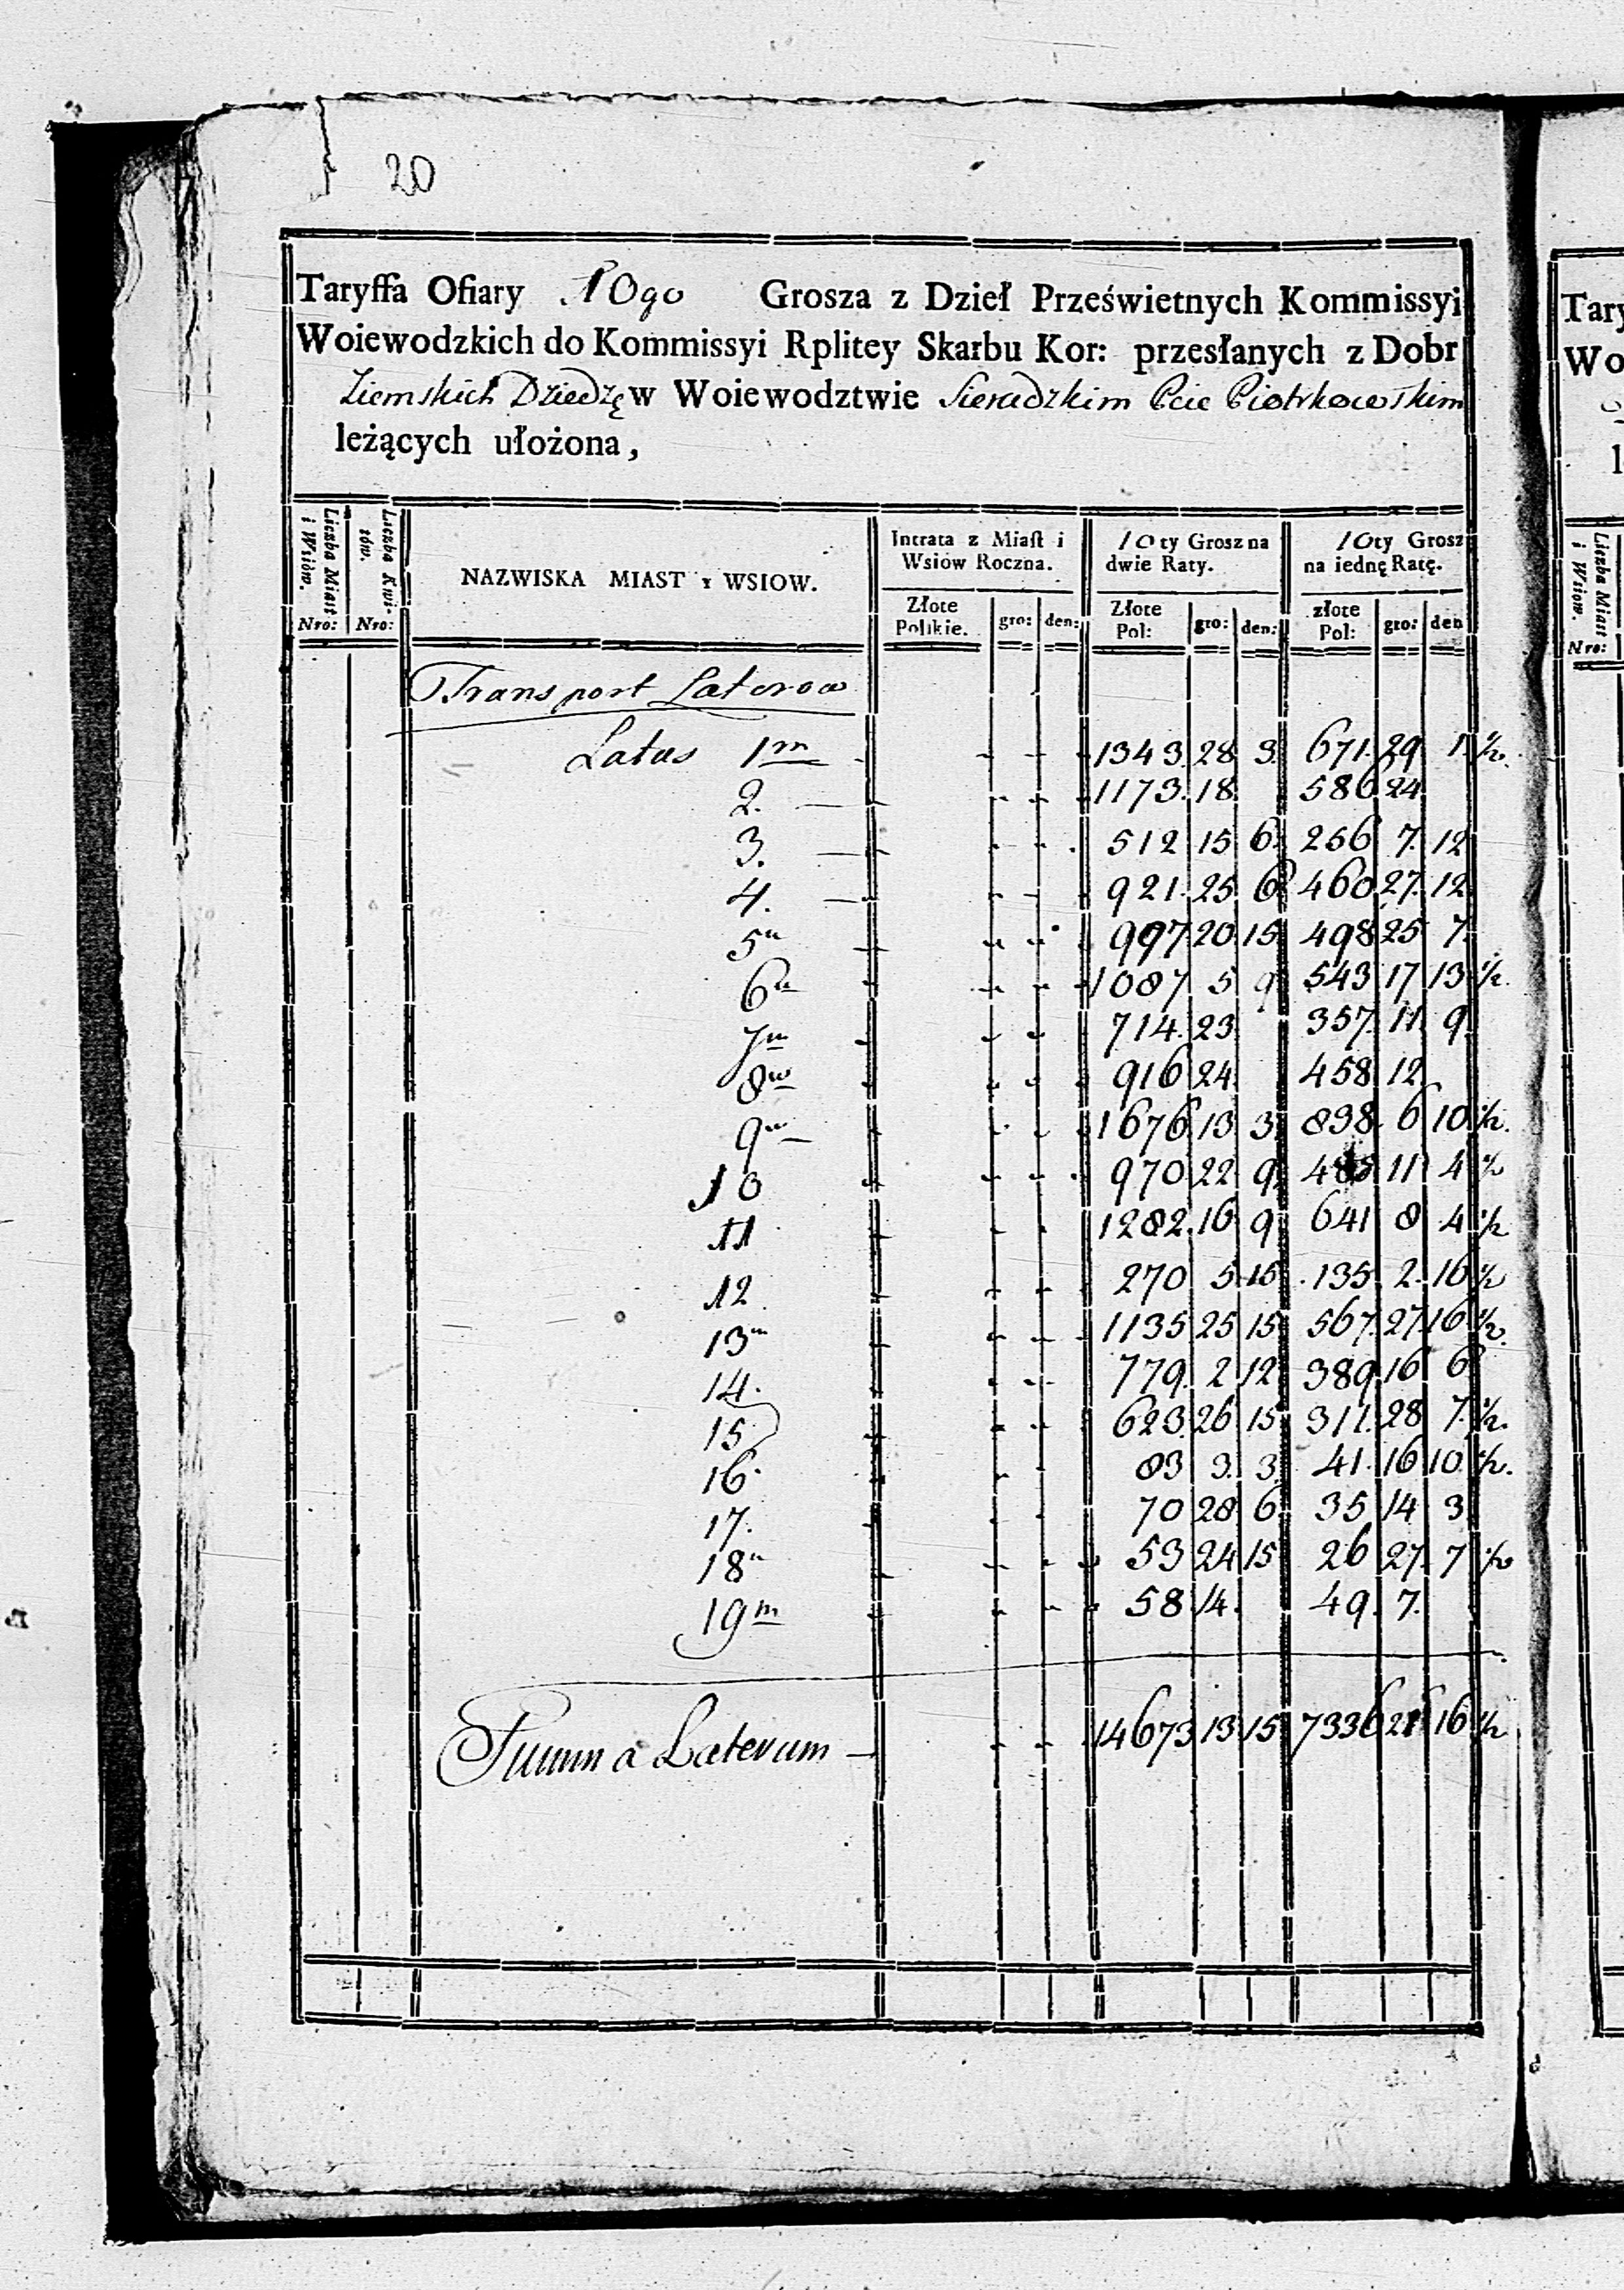 20
Taryffa Ofiary 10go Grosza z Dzieł Prześwietnych Kommissyi
Woiewodzkich do Kommissyi Rplitey Skarbu Kor: przesłanych z Dobr
Ziemskich Dziedzę w Woiewodztwie Sieradzkim Pcie Piotrkowskim
leżących ułożona,
Liczba Miast i Wsiów. Nro:
Liczba Kwitów. Nro:
NAZWISKA MIAST y WSIOW.
Intrata z Miast i Wsiów Roczna.
Złote Polskie. gro: den:
10ty Grosz na dwie Raty.
Złote Pol: gro: den:
10ty Grosz na iednę Ratę.
złote Pol: gro: den
Transport Laterow
Latus 1m 1343. 28 3. 671. 29 1. 1/2.
2. 1173. 18. 586 24
3. 512 15 6. 256 7. 12
4. 921. 25 6 460 27. 12
5u 997 20 15 498 25 7.
6u 1087 5 9 543 17 13 1/2.
7m 714. 23 357. 11. 9
8w 916 24. 458 12
9u 1676 13 3 838. 6 10 1/2.
10 970 22 9 485 11 4 1/2
11 1282. 16 9 641 8 4 1/2
12 270 5 15 135 2. 16 1/2
13m 1135 25 15 567. 27 16 1/2.
14. 779. 2 12 389 16 6
15 623. 26 15 311. 28 7. 1/2.
16. 83 3. 3. 41. 16 10. 1/2.
17. 70 28 6. 35 14 3
18u 53 24 15 26 27. 7 1/2
19m 58 14. 49. 7.
Summa Laterum 14673 13 15 7336 21 16 1/2
Tary
Wo
l
Liczba Miast i Wsiow. Nro: